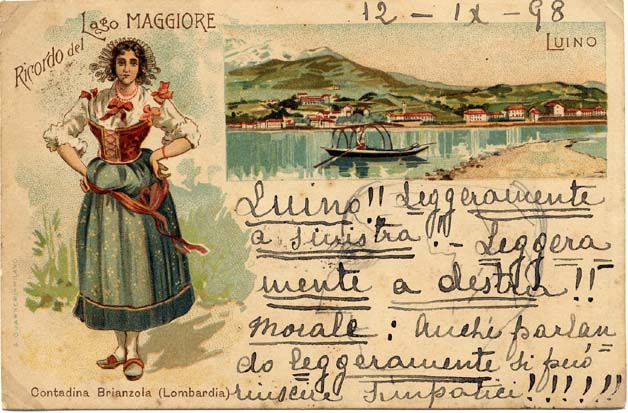 12 - IX - 98
Ricordo del Lago MAGGIORE
LUINO
Luino!! Leggeramente
a sinistra! - Leggera
mente a destra!!
Morale: Anche parlan
do leggeramente si può
riuscire simpatici!!!!!!
Contadina Brianzola (Lombardia)